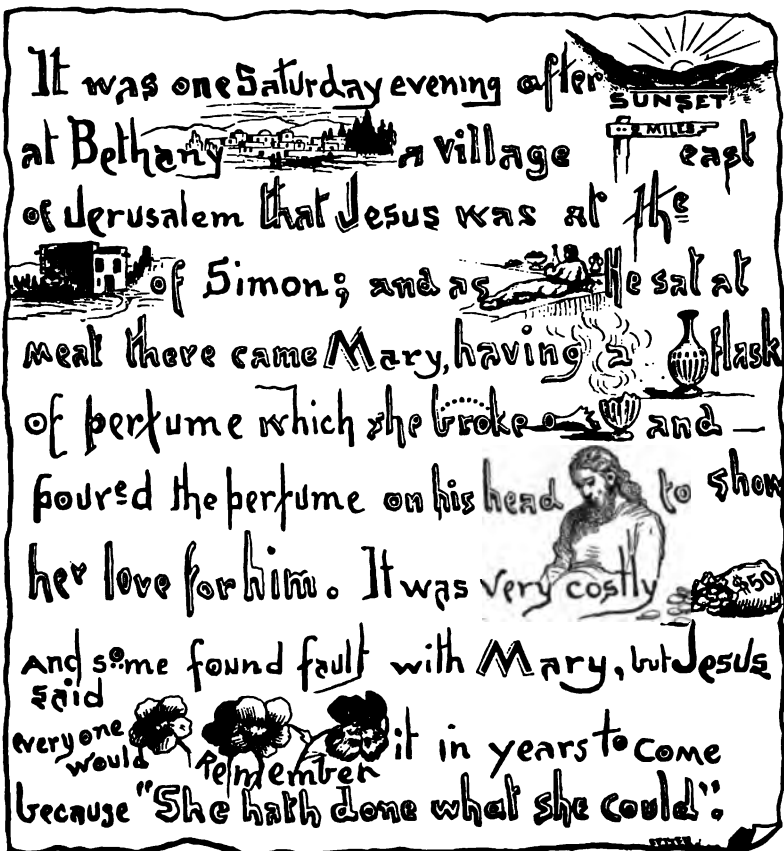 It was one Saturday evening after
SUNSET
at Bethany a village 2 MILES east
of Jerusalem that Jesus was at the
of Simon; and as He sat at
meat there came Mary, having a flask
of perfume which she broke and
poured the perfume on his head to show
her love for him. It was very costly
$50
And some found fault with Mary, but Jesus
said
everyone
would Remember it in years to come
because "She hath done what she could".